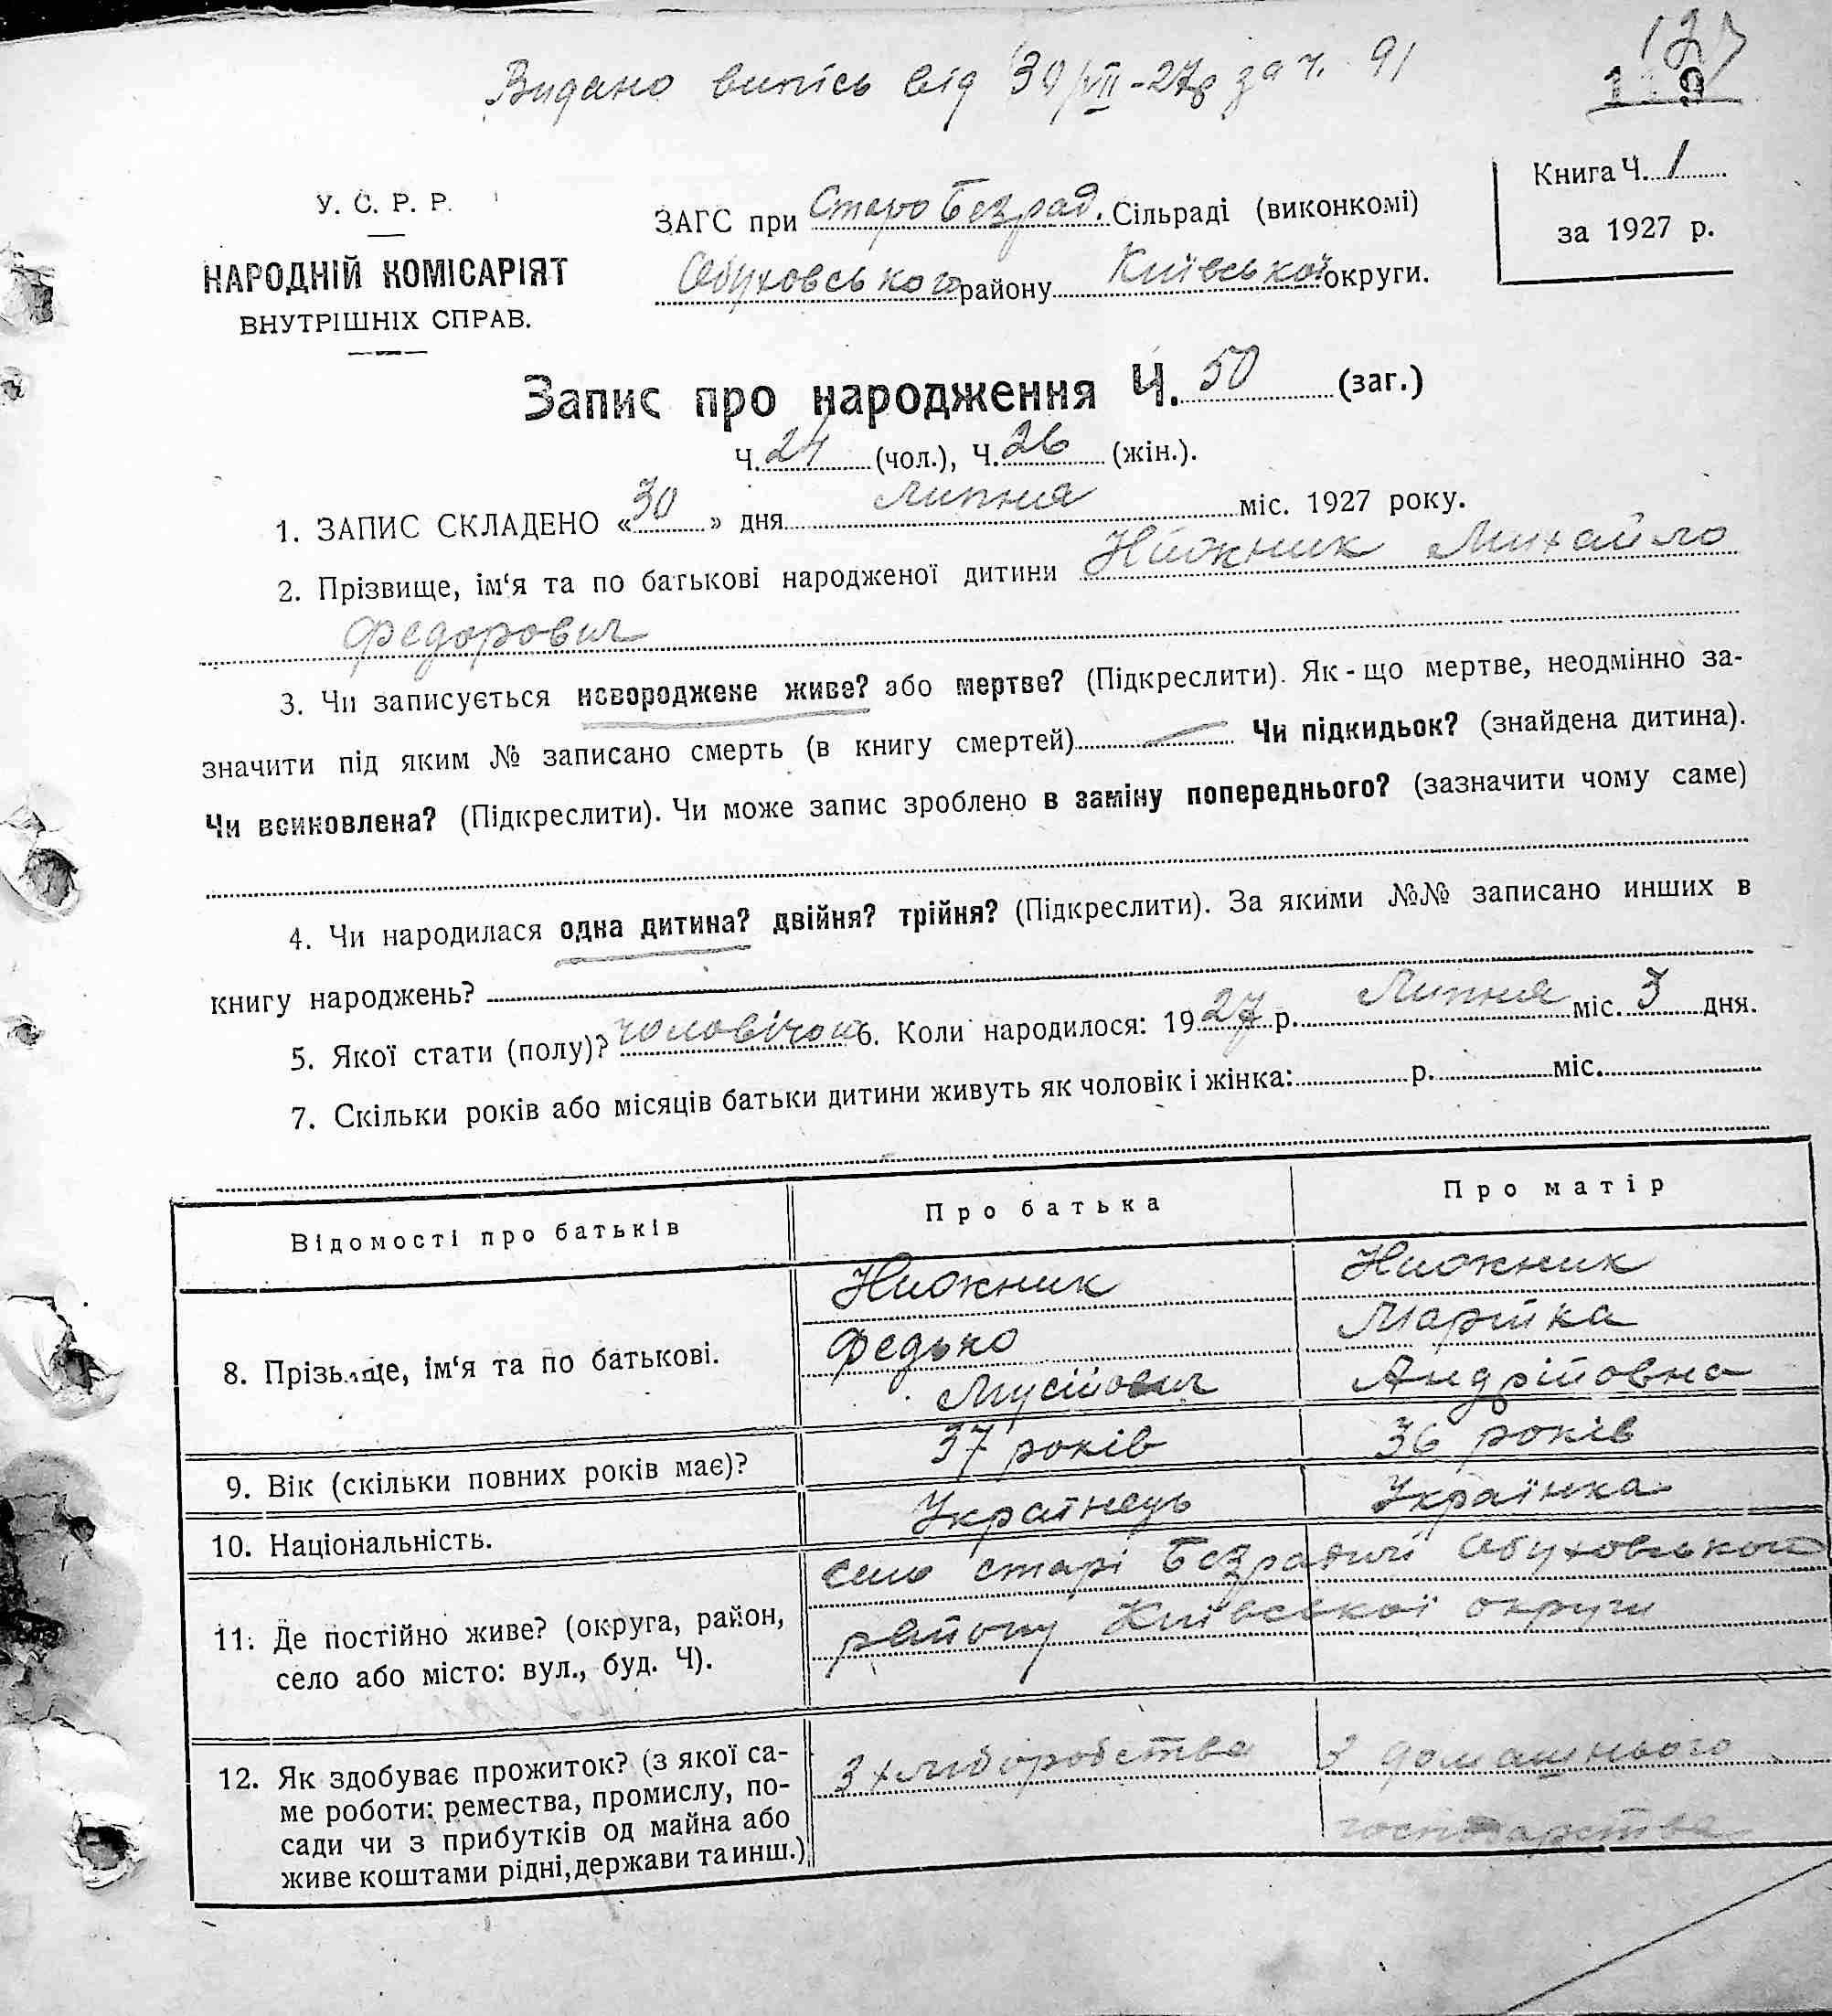 Видано випісь від 30/VII-27р за ч. 91
Книга Ч. 1
за 1927 р.
У. С. Р. Р.
НАРОДНІЙ КОМІСАРІЯТ
ВНУТРІШНІХ СПРАВ.
ЗАГС при Старо Безрад. Сільраді (виконкомі)
Обуховського району Київської округи.
Запис про народження Ч. 50 (заг.)
Ч. 24 (чол.), Ч. 26 (жін.).
1. ЗАПИС СКЛАДЕНО «30» дня Липня міс. 1927 року.
2. Прізвище, ім‘я та по батькові народженої дитини Нижник Михайло
Федорович
3. Чи записується новороджене живе? або мертве? (Підкреслити). Як-що мертве, неодмінно за-
значити під яким № записано смерть (в книгу смертей) Чи підкидьок? (знайдена дитина).
Чи всиновлена? (Підкреслити). Чи може запис зроблено в заміну попереднього? (зазначити чому саме)
4. Чи народилася одна дитина? двійня? трійня? (Підкреслити). За якими №№ записано инших в
книгу народжень?
5. Якої стати (полу)? чоловічої 6. Коли народилося: 1927 р. Липня міс. 3 дня.
7. Скільки років або місяців батьки дитини живуть як чоловік і жінка: р. міс.
Відомості про батьків Про батька Про матір
8. Прізвище, ім‘я та по батькові. Нижник Нижник
Федько Марійка
Мусійович Андрійовна
9. Вік (скільки повних років має)? 37 років 36 років
10. Національність. Українець Українка
11. Де постійно живе? (округа, район, село старі Безрадичі Обуховського
село або місто: вул., буд. Ч). району Київської округи
12. Як здобуває прожиток? (з якої са- З хліборобства З домашнього
ме роботи: ремества, промислу, по- господарства
сади чи з прибутків од майна або
живе коштами рідні, держави та инш.)